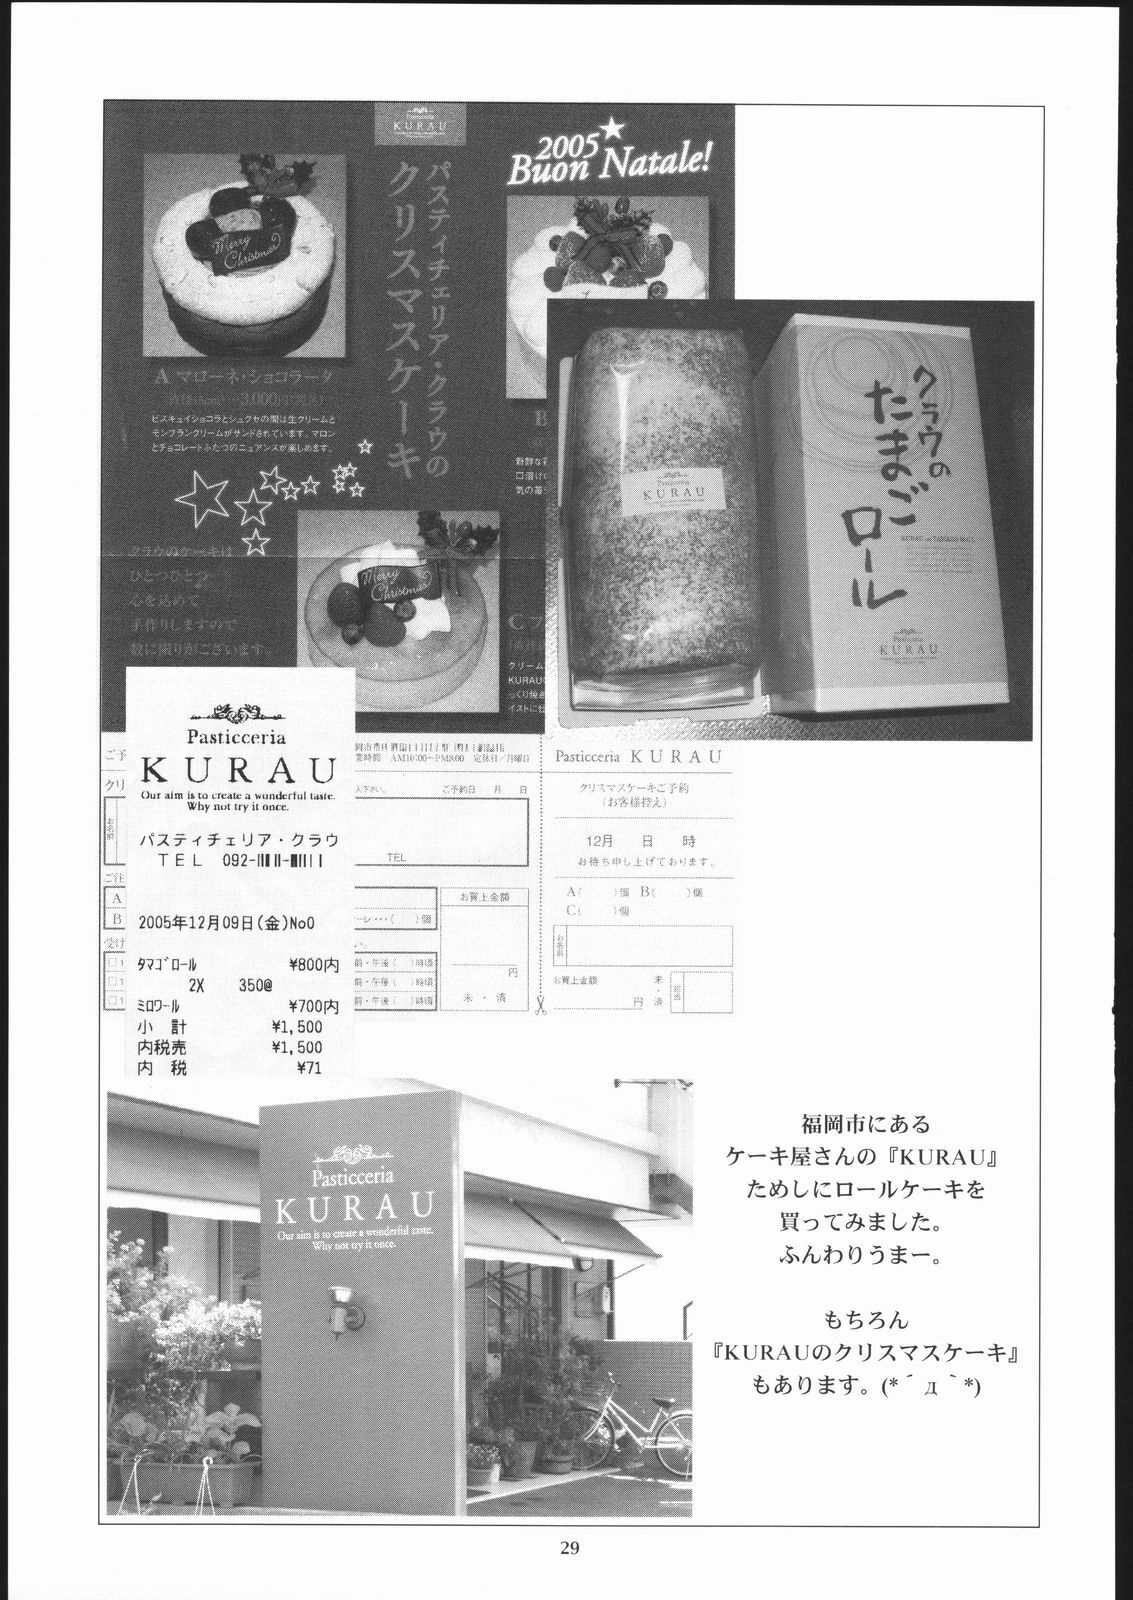 Pasticceria
KURAU
2005
Buon Natale!
パスティチェリア・クラウの
クリスマスケーキ
Merry
Christmas
A マローネ・ショコラータ
3,000円
ビスキュイショコラとシュクセの間は生クリームと
モンブランクリームがサンドされています。マロン
とチョコレートふたつのニュアンスが楽しめます。
B
新鮮な
口溶け
気の苺
クラウのケーキは
ひとつひとつ
心を込めて
手作りしますので
数に限りがございます。
Merry
Christmas
C
クリーム
KURAU
っくり焼き
イストに仕
Pasticceria
KURAU
クラウの
たまご
ロール
KURAU no TAMAGO ROLL
Pasticceria
KURAU
Pasticceria
KURAU
Our aim is to create a wonderful taste.
Why not try it once.
パスティチェリア・クラウ
TEL 092-
2005年12月09日(金)No0
ﾀﾏｺﾞﾛｰﾙ ¥800内
2X 350@
ﾐﾛﾜｰﾙ ¥700内
小 計 ¥1,500
内税売 ¥1,500
内 税 ¥71
ご予
クリ
ご注
A
B
受け
業時間 AM10:00〜PM8:00 定休日/月曜日
入下さい。 ご予約日 月 日
TEL
レ・・・( )個
お買上金額
円
未・済
前・午後( )時頃
前・午後( )時頃
前・午後( )時頃
Pasticceria KURAU
クリスマスケーキご予約
(お客様控え)
12月 日 時
お待ち申し上げております。
A( )個 B( )個
C( )個
お名前
お買上金額
円
未・済
担当
Pasticceria
KURAU
Our aim is to create a wonderful taste.
Why not try it once.
福岡市にある
ケーキ屋さんの『KURAU』
ためしにロールケーキを
買ってみました。
ふんわりうまー。
もちろん
『KURAUのクリスマスケーキ』
もあります。(*´д｀*)
29